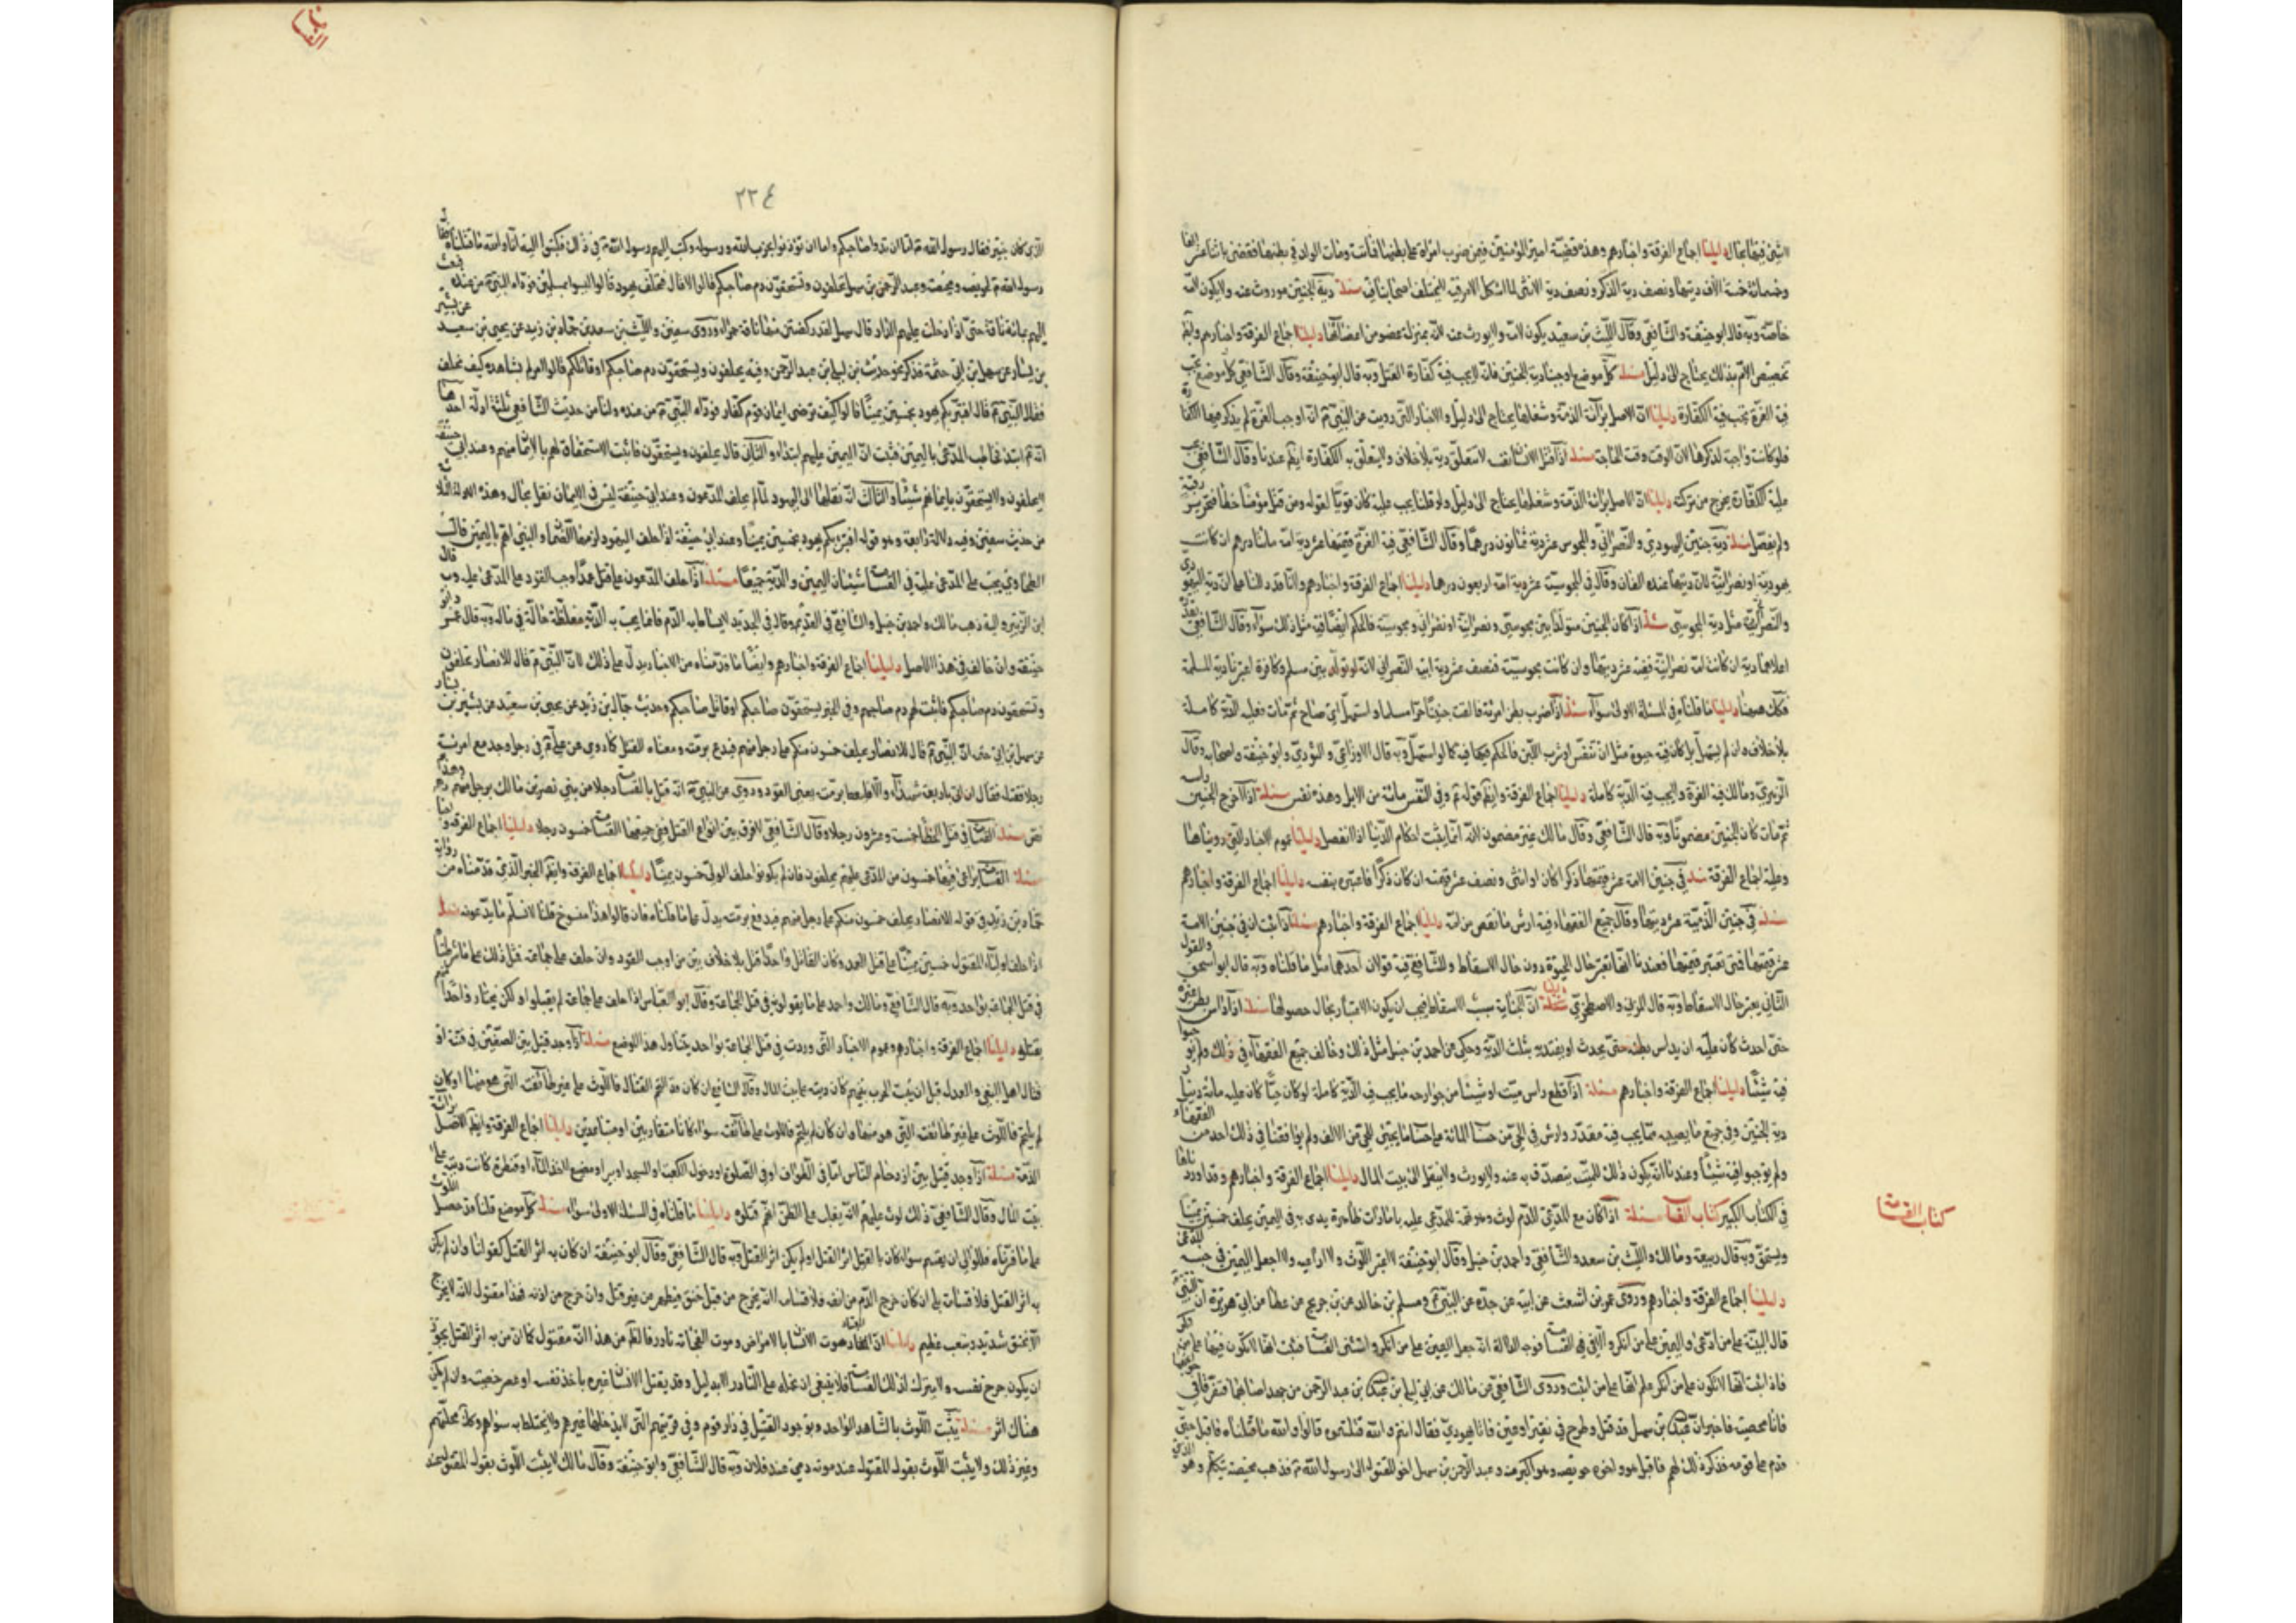 دليلنا اجماع الفرقة واخبارهم وهذه قضيّة امير المؤمنين فيمن ضرب امراة على بطنها فماتت ومات الولد في بطنها فقضى باثنا عشر الفا
وخمسمائة خمسة الاف ديتها ونصف دية الذكر ونصف دية الانثى لما اشكل الامر فيه مسئلة دية الجنين موروثة عنه ولا يكون لامّه
خاصّة وبه قال ابو حنيفة والشّافعي وقال اللّيث بن سعيد يكون لامّه ولا يورث عنه لانّه بمنزلة عضو من اعضائها دليلنا اجماع الفرقة واخبارهم وايضا
تخصيص الامّ بذلك يحتاج الى دليل مسئلة كلّ موضع اوجبنا دية الجنين فانّه لا يجب فيه كفّارة القتل وبه قال ابو حنيفة وقال الشّافعي كلّ موضع تجب
فيه الغرّة تجب فيه الكفّارة دليلنا انّ الاصل برآئة الذمّة وشغلها يحتاج الى دليل والاخبار التى رويت عن النّبى انّه اوجب الغرّة لم يذكر فيها الكفّارة
فلو كانت واجبة لذكرها لانّ الوقت وقت الحاجة مسئلة اذا قتل الانسان نفسه لا يتعلّق دية بلا خلاف ولا يتعلّق به الكفّارة ايضا عندنا وقال الشّافعي تجب
عليه الكفّارة يخرج من تركته دليلنا انّ الاصل برائة الذمّة وشغلها يحتاج الى دليل ولو قلنا يجب عليه كان قويّا لقوله ومن قتل مؤمنا خطأ فتحرير رقبة
ولم يفصّل مسئلة دية جنين اليهودي والنّصراني والمجوس عشر دية ثمانون درهما وقال الشّافعي فيه الغرّة قيمتها عشر دية امّه مائتا درهم ان كانت
يهودية او نصرانيّة لانّ ديتها عنده الفان وقال في المجوسيّة عشر دية امّه اربعون درهما دليلنا اجماع الفرقة واخبارهم وانّا قد دللنا على انّ دية اليهودي
والنّصراني مثل دية المجوسي مسئلة اذا كان الجنين متولّدا بين مجوسي ونصرانيّة او نصراني ومجوسيّة فالحكم ايضا فيه مثل ذلك سوآء وقال الشّافعي يعتبر
اعلاهما دية ان كانت امّه نصرانيّة ففيه عشر ديتها وان كانت مجوسيّة فنصف عشر دية ابيه النّصراني لانّه لو تولّد بين مسلم وكافرة اعتبرنا دية المسلمة
فكذلك هيهنا دليلنا ما قلناه في المسئلة الاولى سوآء مسئلة اذا ضرب بطن امرئة فالقت جنينا حرّا مسلما واستهلّ اي صاح ثمّ مات ففيه الدّية كاملة
بلا خلاف وان لم يستهلّ بل كان فيه حيوة مثل ان تنفّس او شرب اللّبن فالحكم فيه كما لو استهلّ وبه قال الاوزاعي والثّوري وابو حنيفة واصحابه وقال
الزّهري ومالك فيه الغرّة ولا يجب فيه الدّية كاملة دليلنا اجماع الفرقة وايضا قوله وفي النّفس مائة من الابل وهذه نفس مسئلة اذا اخرج الجنين راسه
ثمّ مات كان الجنين مضمونا وبه قال الشّافعي وقال مالك غير مضمون لانّه انّما يثبت احكام الدّنيا اذا انفصل دليلنا عموم الاخبار التي رويناها
وعليه اجماع الفرقة مسئلة في جنين الامة عشر قيمتها ذكرا كان او انثى ونصف عشر قيمته ان كان ذكرا فاعتبره بنفسه دليلنا اجماع الفرقة واخبارهم
مسئلة في جنين الذّميّة عشر ديتها وقال جميع الفقهاء فيه ارش ما نقص من امّه دليلنا اجماع الفرقة واخبارهم مسئلة اذا ثبت ان في جنين الامة
عشر قيمتها فمتى تعتبر قيمتها فعندنا انّها تعتبر حال الحيوة دون حال الاسقاط وللشّافعي فيه قولان احدهما مثل ما قلناه وبه قال ابو اسحق والقول
الثّاني يعتبر حال الاسقاط وبه قال المزني والاصطخري دليلنا انّ الجناية سبب الاسقاط فيجب ان يكون الاعتبار بحال حصولها مسئلة اذا داس بطن غيره
حتى احدث كان عليه ان يداس بطنه حتى يحدث او يفتديه بثلث الدّية وحكي عن احمد بن حنبل مثل ذلك وخالف جميع الفقهاء في ذلك ولم يوجبوا
فيه شيئا دليلنا اجماع الفرقة واخبارهم مسئلة اذا قطع راس ميّت او شيئا من جوارحه ما يجب فيه الدّية كاملة لو كان حيّا كان عليه مائة دينار
دية الجنين وفي جميع ما يصيبه ممّا يجب فيه مقدّر وارش في الحيّ من حساب المائة على حساب ما يجيئ للحيّ من الالف ولم يوافقنا في ذلك احد من الفقهاء
ولم يوجبوا فيه شيئا وعندنا انّه يكون ذلك للميّت يتصدّق به عنه ولا يورث ولا ينقل الى بيت المال دليلنا اجماع الفرقة واخبارهم وقد اوردناها
في الكتاب الكبير كتاب القسامة مسئلة اذا كان مع المدّعي للدّم لوث وهو تهمة للمدّعى عليه بامارات ظاهرة بدى به في اليمين يحلف خمسين يمينا
ويستحقّ وبه قال ربيعة ومالك واللّيث بن سعد والشّافعي واحمد بن حنبل وقال ابو حنيفة لا اعتبر اللّوث ولا اراعيه ولا اجعل اليمين في جنبه المدّعي
دليلنا اجماع الفرقة واخبارهم وروى عمرو بن شعيب عن ابيه عن جدّه عن النّبي ومسلم بن خالد عن بن جريج عن عطا عن ابي هريرة ان النّبي
قال البيّنة على من ادّعى واليمين على من انكر الّا في القسامة فوجه الدلالة انّه جعل اليمين على من انكر واستثنى القسامة فثبت انّها لا تكون فيها على من انكر
فاذا ثبت انّها لا تكون على من انكر علم انّها على من اثبت وروى الشّافعي عن مالك عن ابي ليلى بن عبد الله بن عبد الرّحمن
فاتا محيصة فاخبر انّ عبد الله بن سهل قد قتل وطرح في فقير او عين فاتا يهودي فقال انتم والله قتلتموه قالوا والله ما قتلناه فاقبل حتى
قدم على قومه فذكر ذلك لهم فاقبل هو واخوه حويصة وهو اكبر منه وعبد الرّحمن بن سهل اخو المقتول الى رسول الله فذهب محيصة يتكلّم وهو الّذي
كتاب القسامة
٢٢٤
الّذي كان بخيبر فقال رسول الله امّا ان يدوا صاحبكم واما ان توذنوا بحرب من الله ورسوله وكتب اليهم رسول الله في ذلك فكتبوا اليه انّا والله ما قتلناه فقال
رسول الله لحويصة ومحيصة وعبد الرّحمن بن سهل تحلفون وتستحقّون دم صاحبكم قالوا لا قال فتحلف يهود قالوا ليسوا بمسلمين فوداه النّبي من عنده فبعث
اليهم بمائة ناقة حتى اذا دخلت عليهم الدّار قال سهل لقد ركضتني منها ناقة حمراء وروى سفين واللّيث بن سعد بن حمّاد بن زيد عن يحيى بن سعيد عن بشير
بن يسار عن سهل بن ابي حثمة فذكر نحو حديث بن ليلى بن عبد الرّحمن وفيه يحلفون ويستحقّون دم صاحبكم او قاتلكم قالوا امر لم نشاهده كيف نحلف
فقال النّبي قال افتبرّئكم يهود بخمسين يمينا قالوا كيف نرضى ايمان قوم كفّار فوداه النّبي من عنده ولنا من حديث الشّافعي ثلثة ادلّة احدها
انّه ابتدء فخاطب المدّعي باليمين فثبت انّ اليمين عليهم ابتداء والثّاني قال يحلفون ويستحقّون فاثبت الاستحقاق لهم بالايمان منهم وعند ابي حنيفة
لا يحلفون ولا يستحقّون بايمانهم شيئا والثّالث انّه نقلها الى اليهود لمّا لم يحلف المدّعون وعند ابي حنيفة ليس في الايمان نقل بحال وهذه الادلة الثلاثة
من حديث سفين وفيه دلالة رابعة وهو قوله افتبرئكم يهود بخمسين يمينا وعند ابي حنيفة اذا حلف اليهود لزمها القضا والنبي ابراهم باليمين قال
الطحاوي يجب على المدّعى عليه في القسامة شيئان اليمين والدّية جميعا مسئلة اذا حلف المدّعون على قتل عمد وجب القود على المدّعى عليه وبه قال
ابن الزّبير واليه ذهب مالك واحمد بن حنبل والشّافعي في القديم وقال في الجديد لا يشاط به الدّم فانما يجب به الدّية مغلّظة حالّة في ماله وبه قال ابو
حنيفة وان خالف في هذا الاصل دليلنا اجماع الفرقة واخبارهم وايضا ما قدّمناه من الاخبار يدلّ على ذلك لانّ النّبي قال للانصار تحلفون
وتستحقون دم صاحبكم فاثبت لهم دم صاحبهم وفي الخبر يستحقّون صاحبكم او قاتل صاحبكم وحديث حمّاد بن زيد عن يحيى بن سعيد عن بشير بن يسار
عن سهل بن ابي حثمة انّ النّبي قال للانصار يحلف خمسون منكم على رجل منهم فيدفع برمّته ومعناه للقتل كما روى عن علي في رجل وجد مع امرئته
رجلا فقتله فقال ان اتى باربعة شهداء والّا فليعط برمّته يعنى القود وروى عن النبي انّه قتل بالقسامة رجلا من بني نصر بن مالك
مسئلة القسامة في قتل الخطأ خمسة وعشرون رجلا وقال الشّافعي لا فرق بين انواع القتل ففي جميعها القسامة خمسون رجلا دليلنا اجماع الفرقة واخبارهم
مسئلة القسامة يراعى فيها خمسون من المدّعى عليهم يحلفون فان لم يكونوا حلف الولي خمسون يمينا دليلنا اجماع الفرقة وايضا الخبر الّذي قدّمناه من رواية
حمّاد بن زيد في قوله للانصار يحلف خمسون منكم على رجل منهم فيدفع برمّته يدلّ على ما قلناه فان قالوا هذا منسوخ قلنا لا نسلّم ما يدّعونه مسئلة
اذا حلف اولياء المقتول خمسين يمينا على قتل العمد وكان القاتل واحدا قتل بلا خلاف بين من اوجب القود وان حلف على جماعة فمثل ذلك على ما
في قتل الجماعة بواحد وبه قال الشّافعي ومالك واحمد على ما يقولونه في قتل الجماعة وقال ابو العبّاس اذا حلف على جماعة لم يقتلوا ولكن يختار واحدا
يقتلوه دليلنا اجماع الفرقة واخبارهم وعموم الاخبار التى وردت في قتل الجماعة بواحد يتناول هذا الموضع مسئلة اذا وجد قتيل بين الصّفّين في فتنة او
قتال اهل البغي والعدل قبل ان ينشب الحرب بينهم كان ديته على بيت المال وقال الشافعي ان كان قد التحم القتال فاللّوث على غير طائفته التى هو منها وان كان
لم يلتحم فاللّوث على غير طائفته التي هو منها وان كان لم يلتحم فاللّوث على طائفته سواء كانا متقاربين او متباعدين دليلنا اجماع الفرقة وايضا الاصل برائة
الذمّة مسئلة اذا وجد قتيل بين ازدحام النّاس امّا في الطّواف او في الصّلوة او دخول الكعبة او المسجد او بير او مصنع لاخذ الماء او قنطرة كانت ديته على
بيت المال وقال الشّافعي ذلك لوث عليهم لانّه يغلب على الظّنّ انّهم قتلوه دليلنا ما قلناه في المسئلة الاولى سواء مسئلة كلّ موضع قلنا قد حصل اللّوث
على ما فسّرناه فللولي ان يقسم سواء كان بالقتيل اثر القتل او لم يكن اثر القتل وبه قال الشّافعي وقال ابو حنيفة ان كان به اثر القتل كقولنا وان لم يكن
به اثر القتل فلا قسامة بلى ان كان خرج الدّم من انفه فلا قسامة لانّه يخرج من قبل خنق فيظهر من غير قتل وان خرج من اذنه فهذا مقتول لانّه لا يخرج
الّا بخنق شديد وبتعب عظيم دليلنا انّ المعتاد موت الانسان بالامراض وموت الفجأة نادر فالظّاهر من هذا انّه مقتول كما ان من به اثر القتل يجوز
ان يكون جرح نفسه ولا يترك لذلك القسامة فلا ينبغي ان نحمله على النّادر الّا بدليل وقد يقتل الانسان غيره باخذ نفسه او عصر خصيته وان لم يكن
هناك اثر مسئلة يثبت اللّوث بالشّاهد الواحد وبوجود القتيل في دار قوم وفي قريتهم الّتي لا يدخلها غيرهم ولا يختلط به سواهم وكذلك محلّتهم
وغير ذلك ولا يثبت اللّوث بقول المقتول عند موته دمي عند فلان وبه قال الشّافعي وابو حنيفة وقال مالك لا يثبت اللّوث بقول المقتول عند